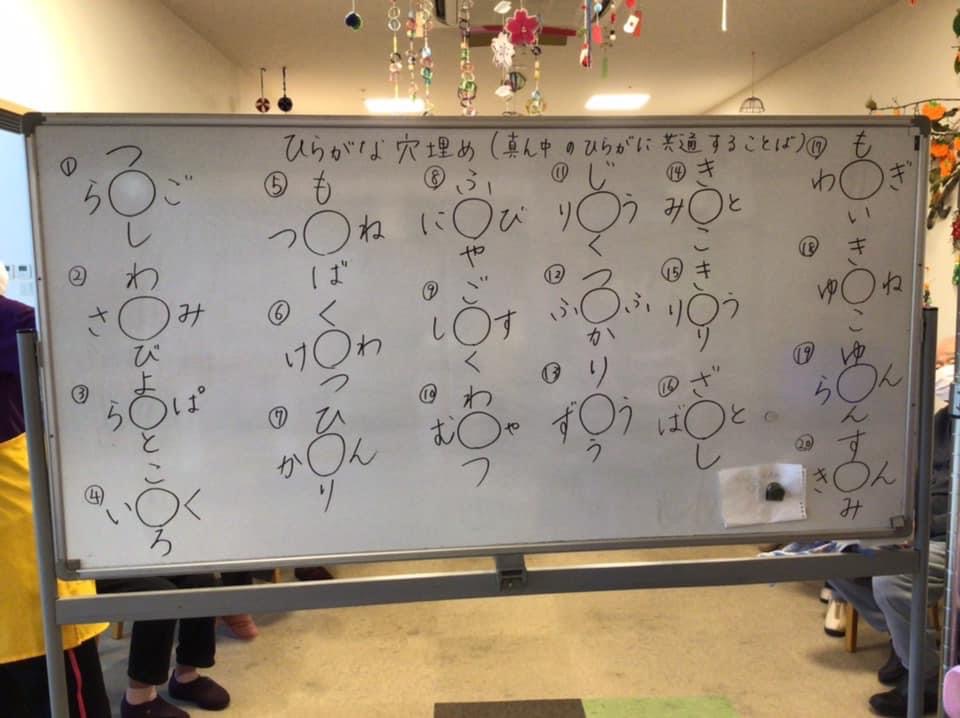 ひらがな穴埋め(真ん中のひらがなに共通することば)
①
つ
ら○ご
し
②
わ
さ○み
び
③
よ
ら○ぱ
と
④
こ
い○く
ろ
⑤
も
つ○ね
ば
⑥
く
け○わ
つ
⑦
ひ
か○ん
り
⑧
ふ
に○び
や
⑨
ご
し○す
く
⑩
わ
む○ゃ
つ
⑪
じ
り○う
く
⑫
つ
ふ○ふ
か
⑬
り
ず○う
う
⑭
き
み○と
こ
⑮
き
り○う
り
⑯
ざ
ば○と
し
⑰
も
わ○ぎ
い
⑱
き
ゆ○ね
こ
⑲
ゆ
ら○ん
ん
⑳
す
き○ん
み